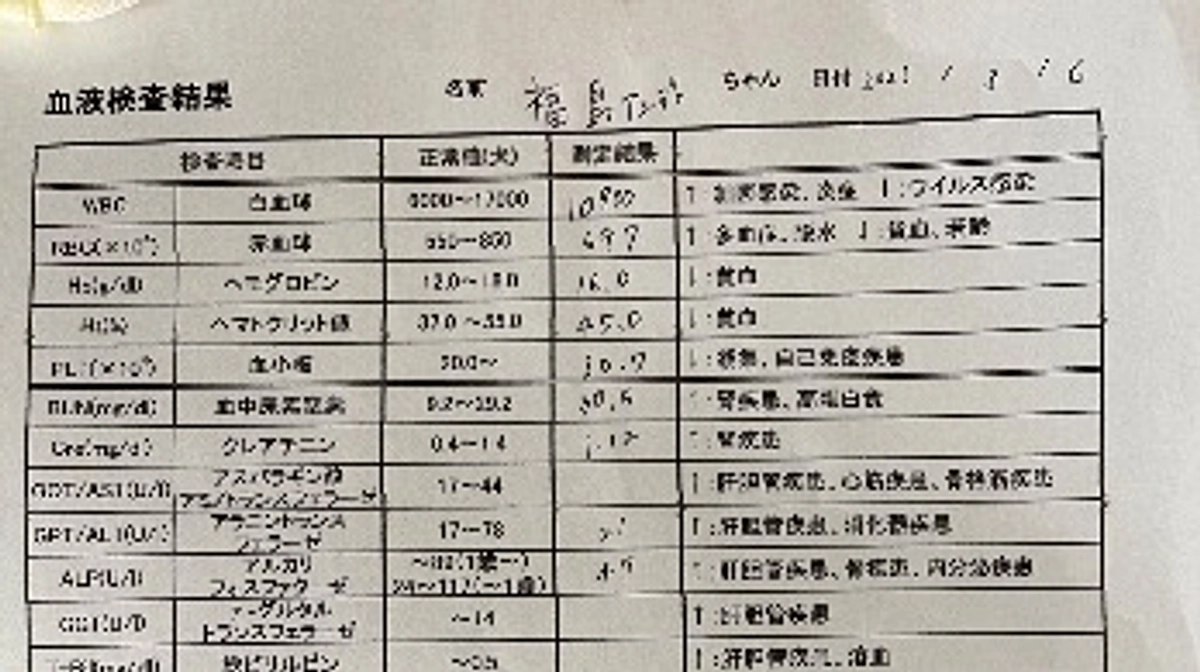 血液検査結果 名前 福島 ちゃん 日付 2021 / 3 / 6
検査項目 正常値(犬) 測定結果
WBC 白血球 6000～17000 10800 ↑:細菌感染、炎症 ↓:ウイルス感染
RBC(×10⁴) 赤血球 550～850 697 ↑:多血症、脱水 ↓:貧血、若齢
Hb(g/dl) ヘモグロビン 12.0～18.0 16.0 ↓:貧血
Ht(%) ヘマトクリット値 37.0～55.0 45.0 ↓:貧血
PLT(×10⁴) 血小板 20.0～ 30.9 ↓:凝集、自己免疫疾患
BUN(mg/dl) 血中尿素窒素 9.2～29.2 30.5 ↑:腎疾患、高蛋白食
Cre(mg/dl) クレアチニン 0.4～1.4 1.12 ↑:腎疾患
GOT/AST(U/l) アスパラギン酸
アミノトランスフェラーゼ 17～44 ↑:肝胆管疾患、心筋疾患、骨格筋疾患
GPT/ALT(U/l) アラニントランス
フェラーゼ 17～78 ↑:肝胆管疾患、消化器疾患
ALP(U/l) アルカリ
フォスファターゼ ～89(1歳～)
～117(～1歳) ↑:肝胆管疾患、骨疾患、内分泌疾患
GGT(U/l) γ-グルタル
トランスフェラーゼ ～14 ↑:肝胆管疾患
T-Bil(mg/dl) 総ビリルビン ～0.5 ↑:肝胆管疾患、溶血